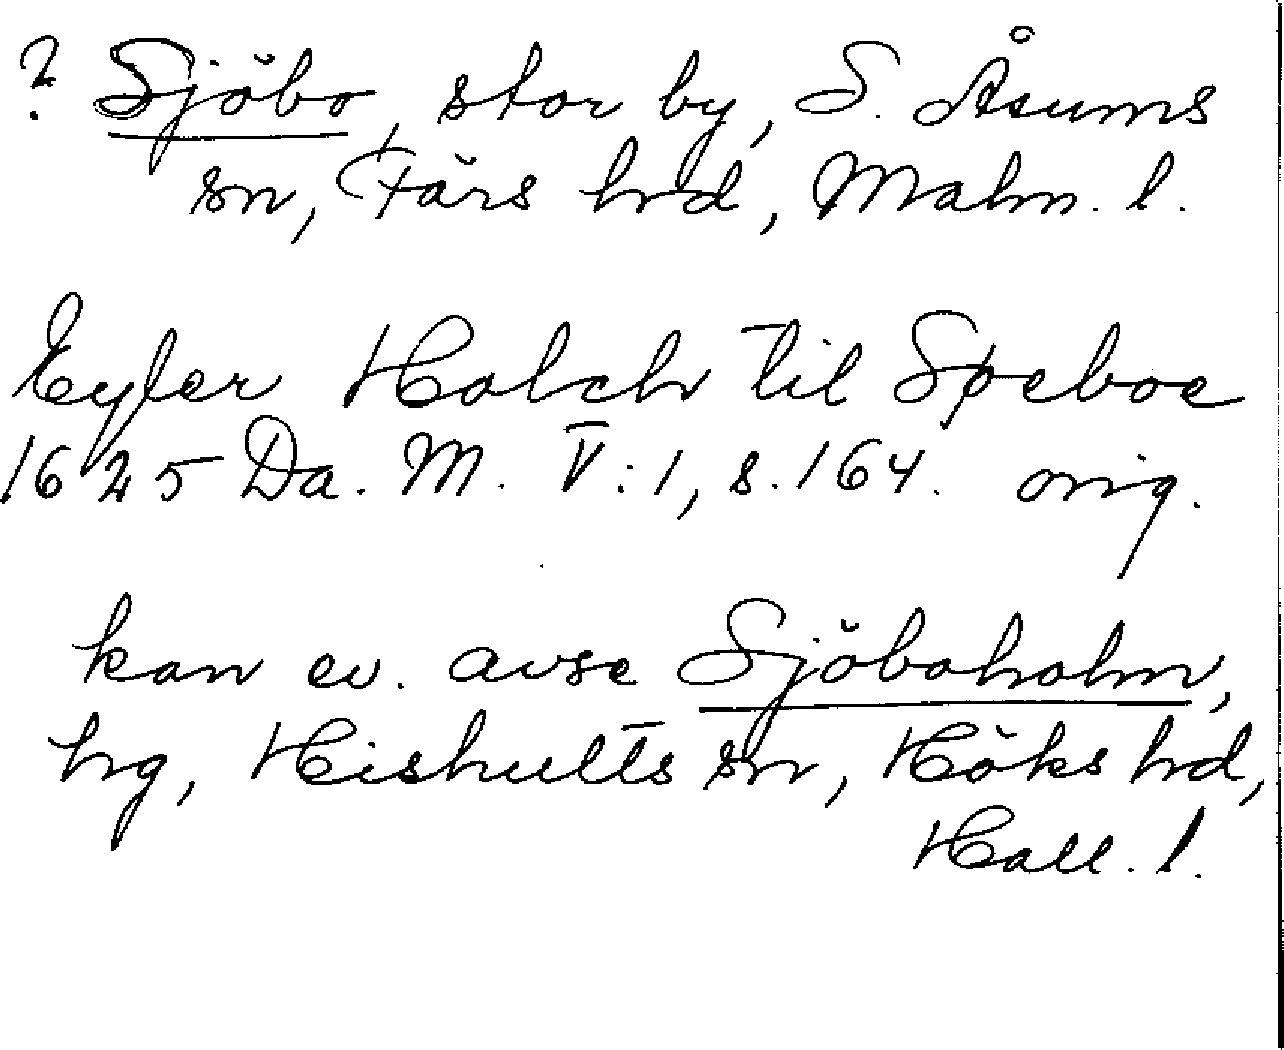 ? Sjöbo, stor by, S. Åsums
sn, Färs hrd, Malm. l.
Eyler Holch til Søeboe
1625 Da. M. V:1, s. 164. orig.
kan ev. avse Sjöboholm,
hg, Hishults sn, Höks hrd,
Hall. l.